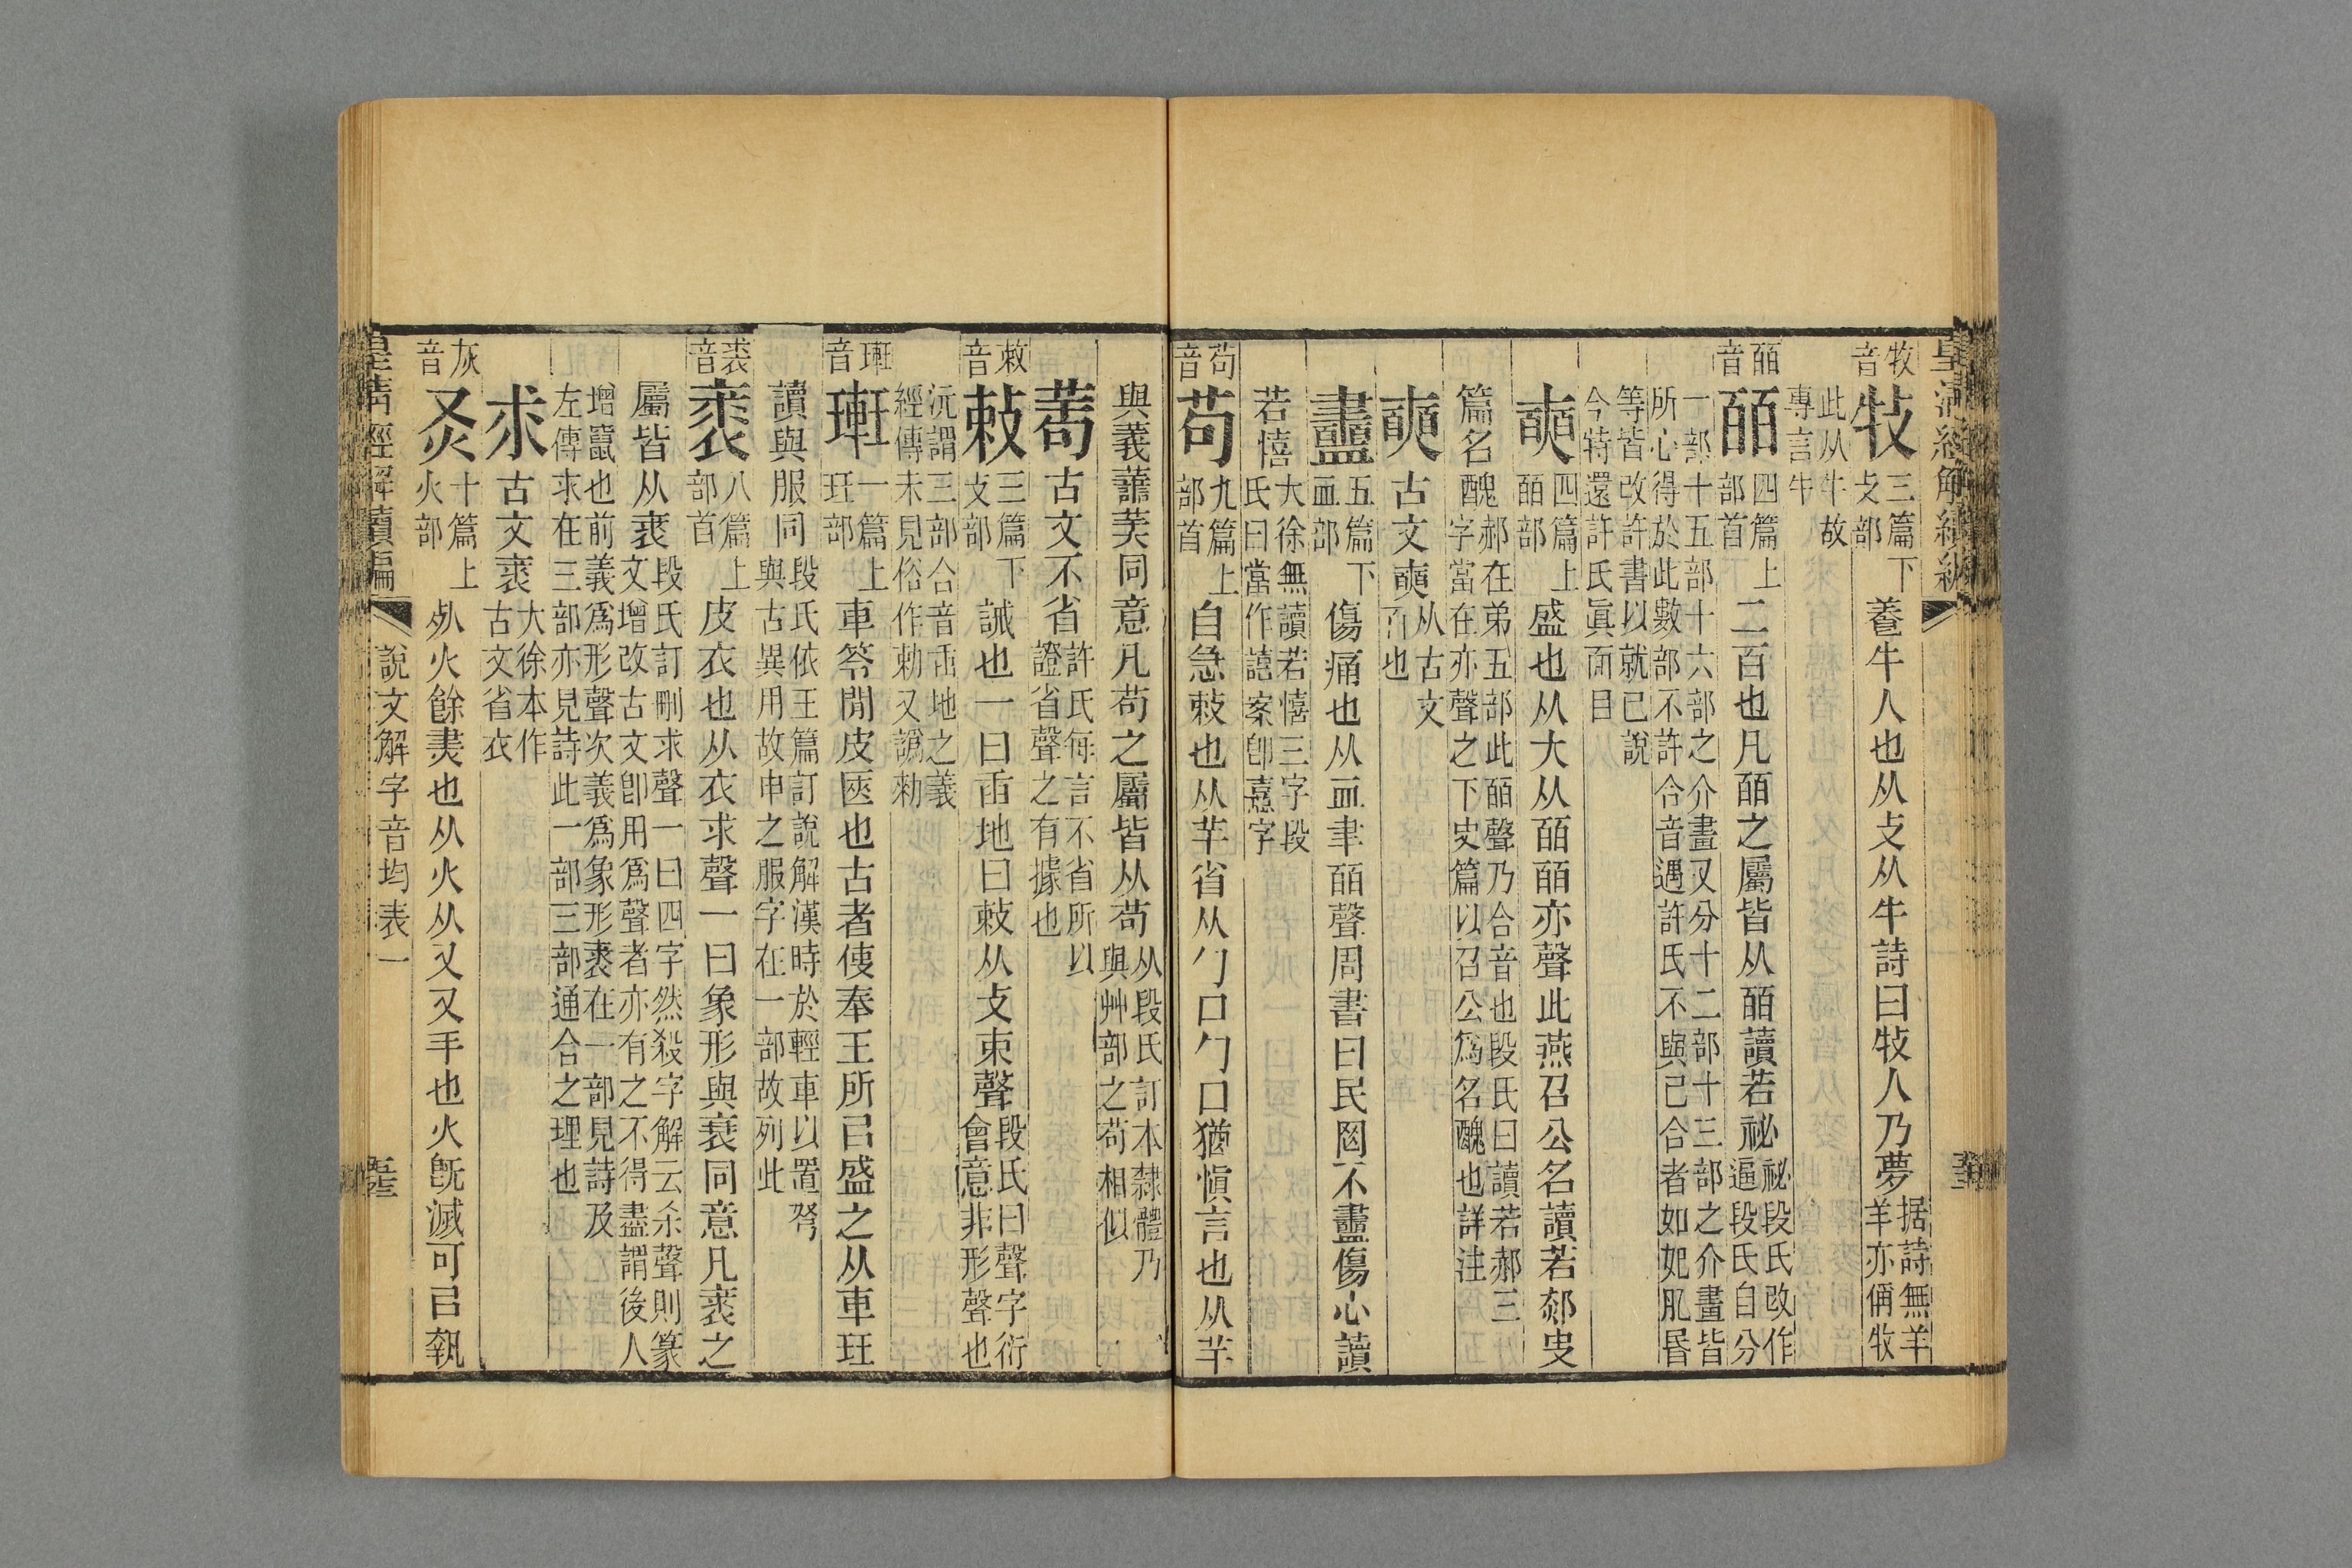 皇清經解續編
牧音 牧 三篇下攴部 養牛人也从攴从牛詩曰牧人乃夢 据詩無羊羊亦偁牧
此从牛故專言牛
皕音 皕 四篇上部首 二百也凡皕之屬皆从皕讀若祕 祕段氏改作逼段氏自分
一部十五部十六部之介畫又分十二部十三部之介畫皆所心得於此數部不許合音遇許氏不與已合者如妃肌㫺
等皆改許書以就已說今特還許氏眞面目
奭 四篇上皕部 盛也从大从皕皕亦聲此燕召公名讀若郝史
篇名醜 郝在弟五部此皕聲乃合音也段氏曰讀若郝三字當在亦聲之下史篇以召公爲名醜也詳注
奭 古文奭 从古文𦣻也
衋 五篇下血部 傷痛也从血聿皕聲周書曰民罔不衋傷心讀
若憘 大徐無讀若憘三字段氏曰當作譆案卽嘉字
茍音 茍 九篇上部首 自急敕也从羊省从勹口勹口猶愼言也从羊
與義譱美同意凡茍之屬皆从茍 从段氏訂本隸體乃與艸部之苟相似
𦴹 古文不省 許氏每言不省所以證省聲之有據也
敕音 敕 三篇下攴部 誡也一曰臿地曰敕从攴束聲 段氏曰聲字衍會意非形聲也
沅謂三部合音臿地之義經傳未見俗作勅又譌勑
㻎音 㻎 一篇上玨部 車笭閒皮匧也古者使奉玉所㠯盛之从車玨
讀與服同 段氏依玉篇訂說解漢時於輕車以置弩與古異用故申之服字在一部故列此
裘音 裘 八篇上部首 皮衣也从衣求聲一曰象形與衰同意凡裘之
屬皆从裘 段氏訂刪求聲一曰四字然殺字解云杀聲則篆文增改古文卽用爲聲者亦有之不得盡謂後人
增竄也前義爲形聲次義爲象形裘在一部見詩及左傳求在三部亦見詩此一部三部通合之理也
求 古文裘 大徐本作古文省衣
灰音 灰 十篇上火部 𤆎火餘㶳也从火从又又手也火旣滅可㠯執
皇清經解續編 說文解字音均表一